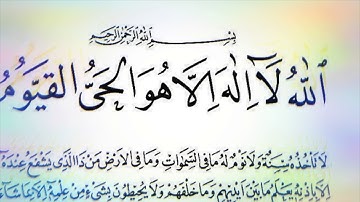 بِسْمِ اللهِ الرَّحْمٰنِ الرَّحِيْمِ
اَللهُ لَآ اِلٰهَ اِلَّا هُوَ الْحَيُّ الْقَيُّوْمُ
لَا تَاْخُذُهٗ سِنَةٌ وَّلَا نَوْمٌ لَهٗ مَا فِى السَّمٰوٰتِ وَمَا فِى الْاَرْضِ مَنْ ذَا الَّذِىْ يَشْفَعُ عِنْدَهٗٓ
اِلَّا بِاِذْنِهٖ يَعْلَمُ مَا بَيْنَ اَيْدِيْهِمْ وَمَا خَلْفَهُمْ وَلَا يُحِيْطُوْنَ بِشَىْءٍ مِّنْ عِلْمِهٖٓ اِلَّا بِمَا شَآءَ